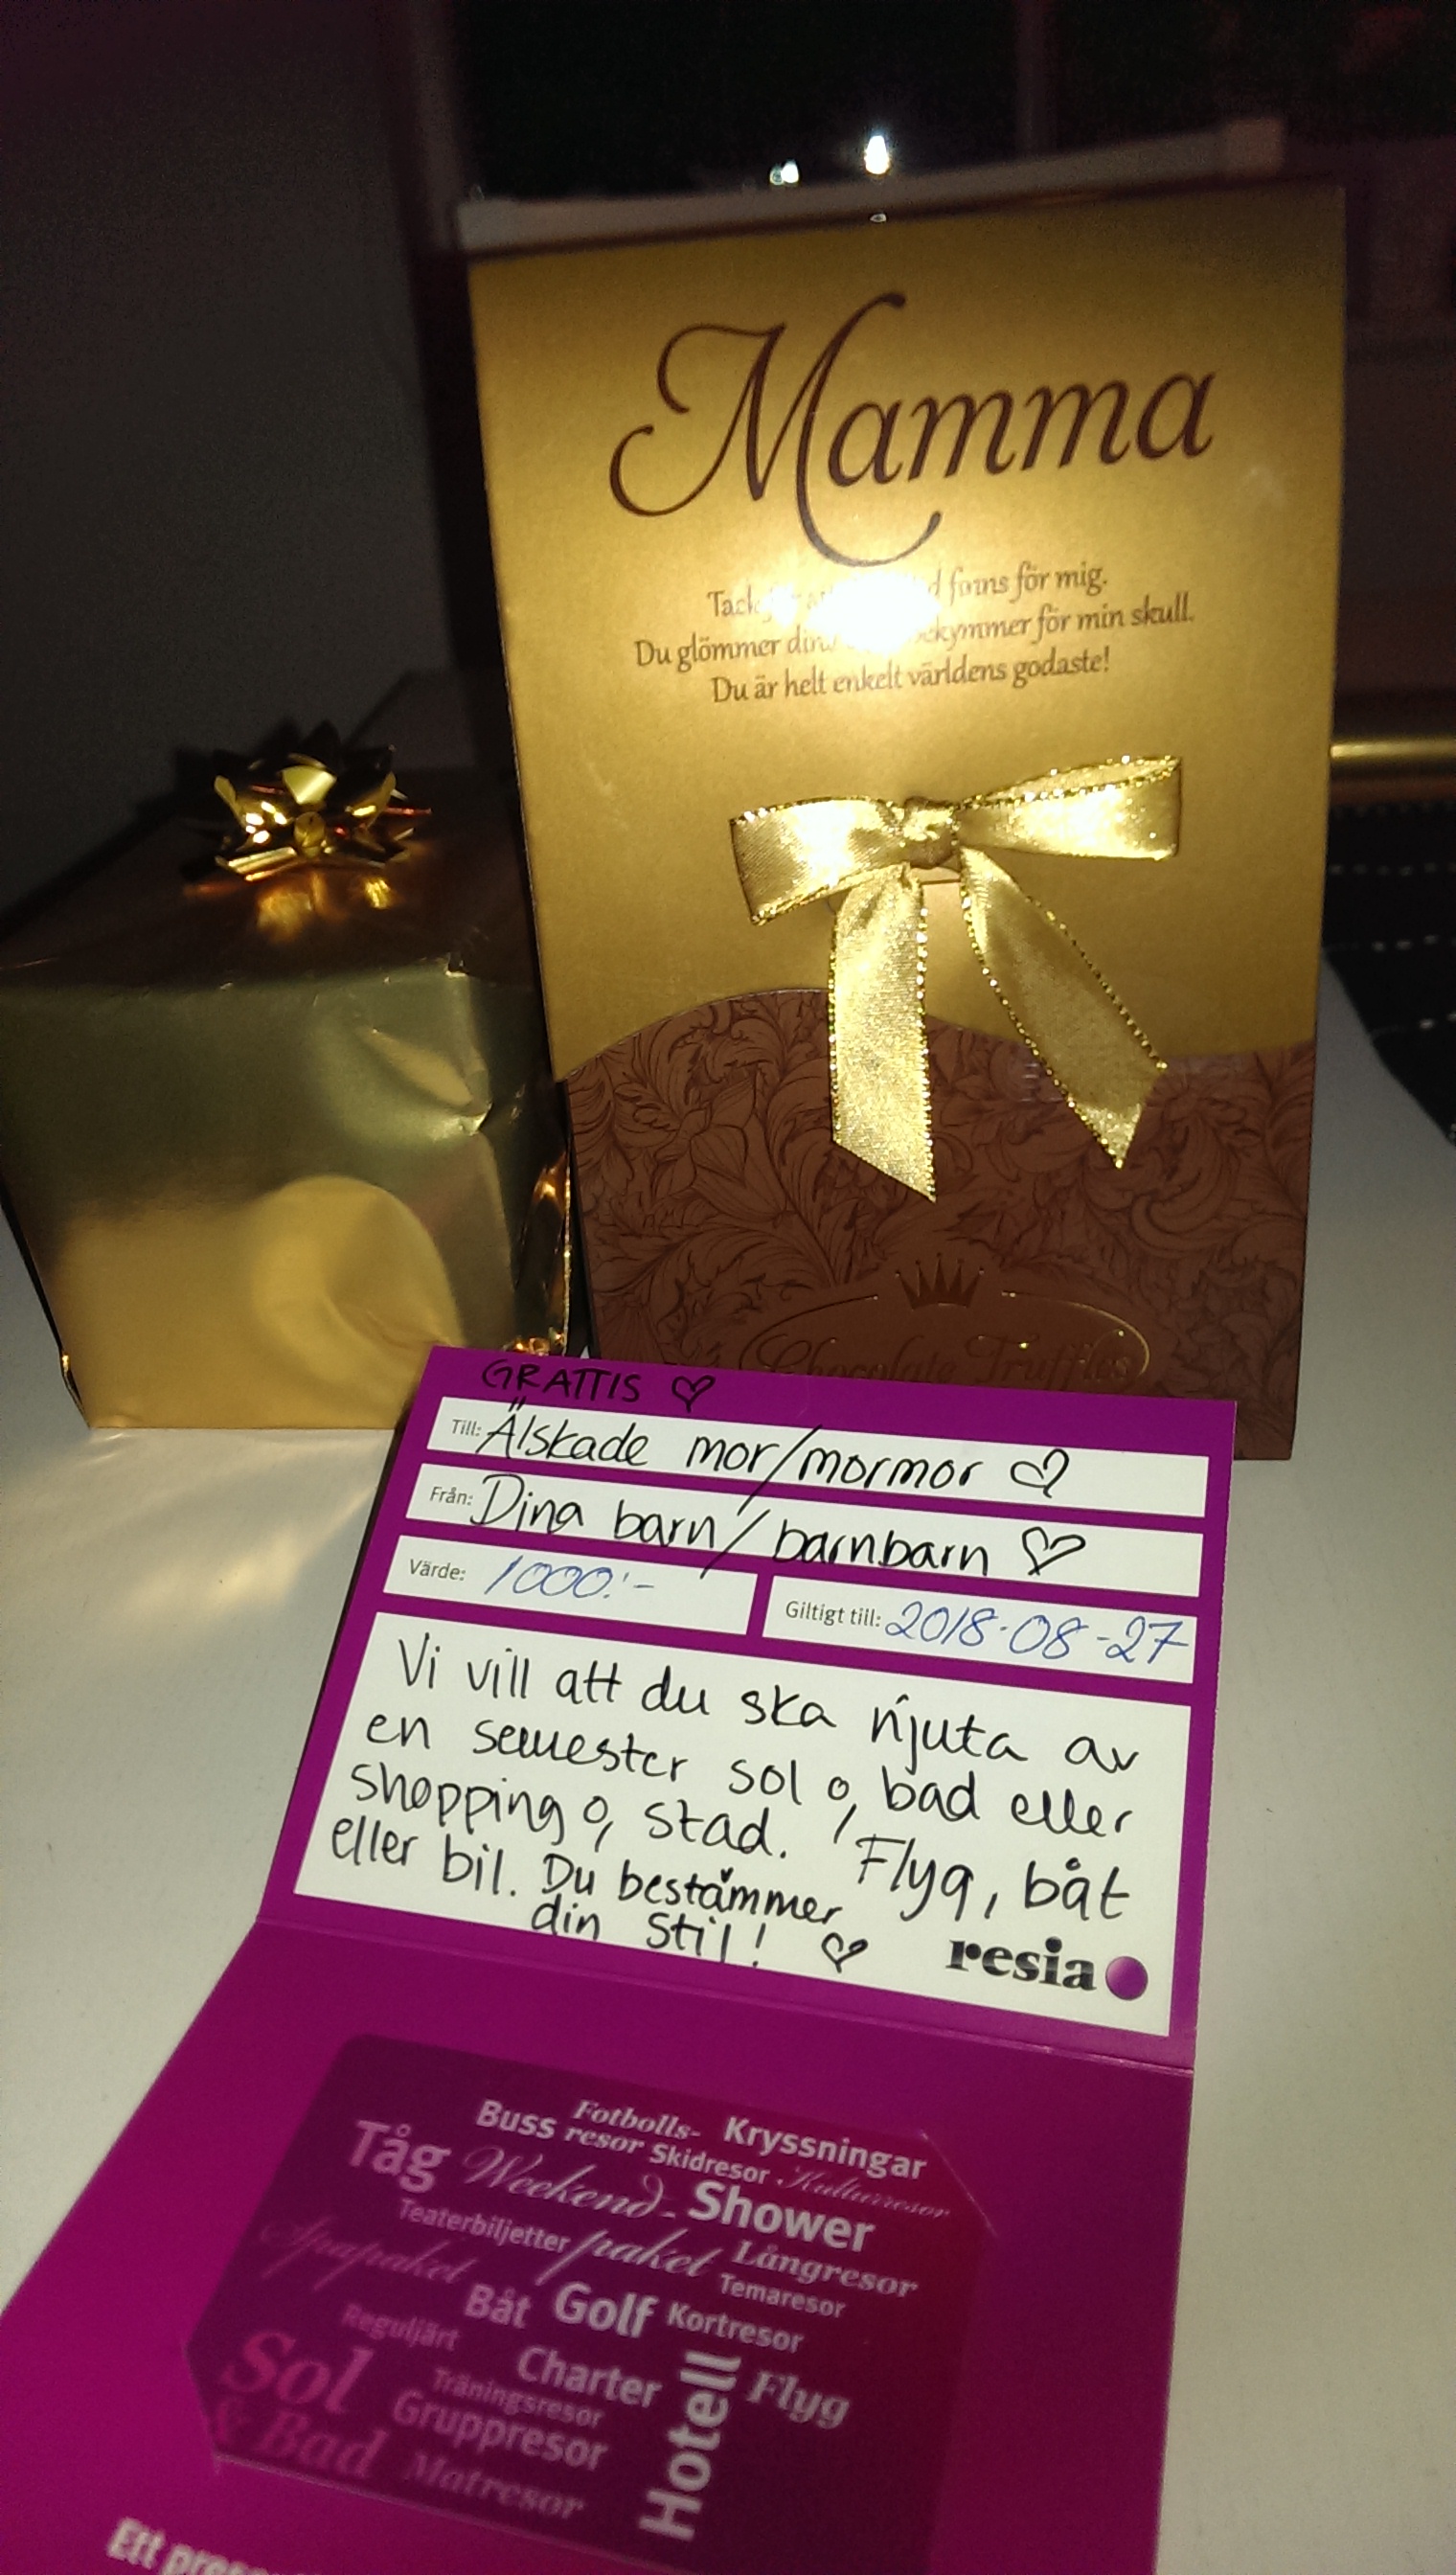 Mamma
Tack fanns för mig.
Du glömmer bekymmer för min skull.
Du är helt enkelt världens godaste!
Chocolate Truffles
GRATTIS
Till: Älskade mor/mormor
Från: Dina barn/barnbarn
Värde: 1000:-
Giltigt till: 2018-08-27
Vi vill att du ska njuta av
en semester sol o, bad eller
shopping o, stad. Flyg, båt
eller bil. Du bestämmer
din stil!
resia
Fotbolls- Kryssningar
Buss resor Skidresor Kulturresor
Tåg Weekend- Shower
Teaterbiljetter paket Långresor
Spapaket Temaresor
Båt Golf Kortresor
Reguljärt
Sol Charter Hotell Flyg
Träningsresor
& Bad Gruppresor
Matresor
Ett